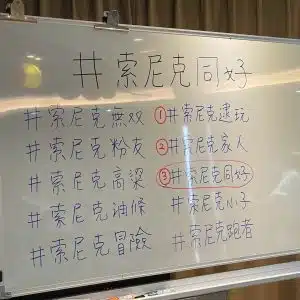 #索尼克同好
#索尼克無双
#索尼克粉友
#索尼克高梁
#索尼克油條
#索尼克冒險
①#索尼克速玩
②#索尼克家人
③#索尼克同好
#索尼克小子
#索尼克跑者